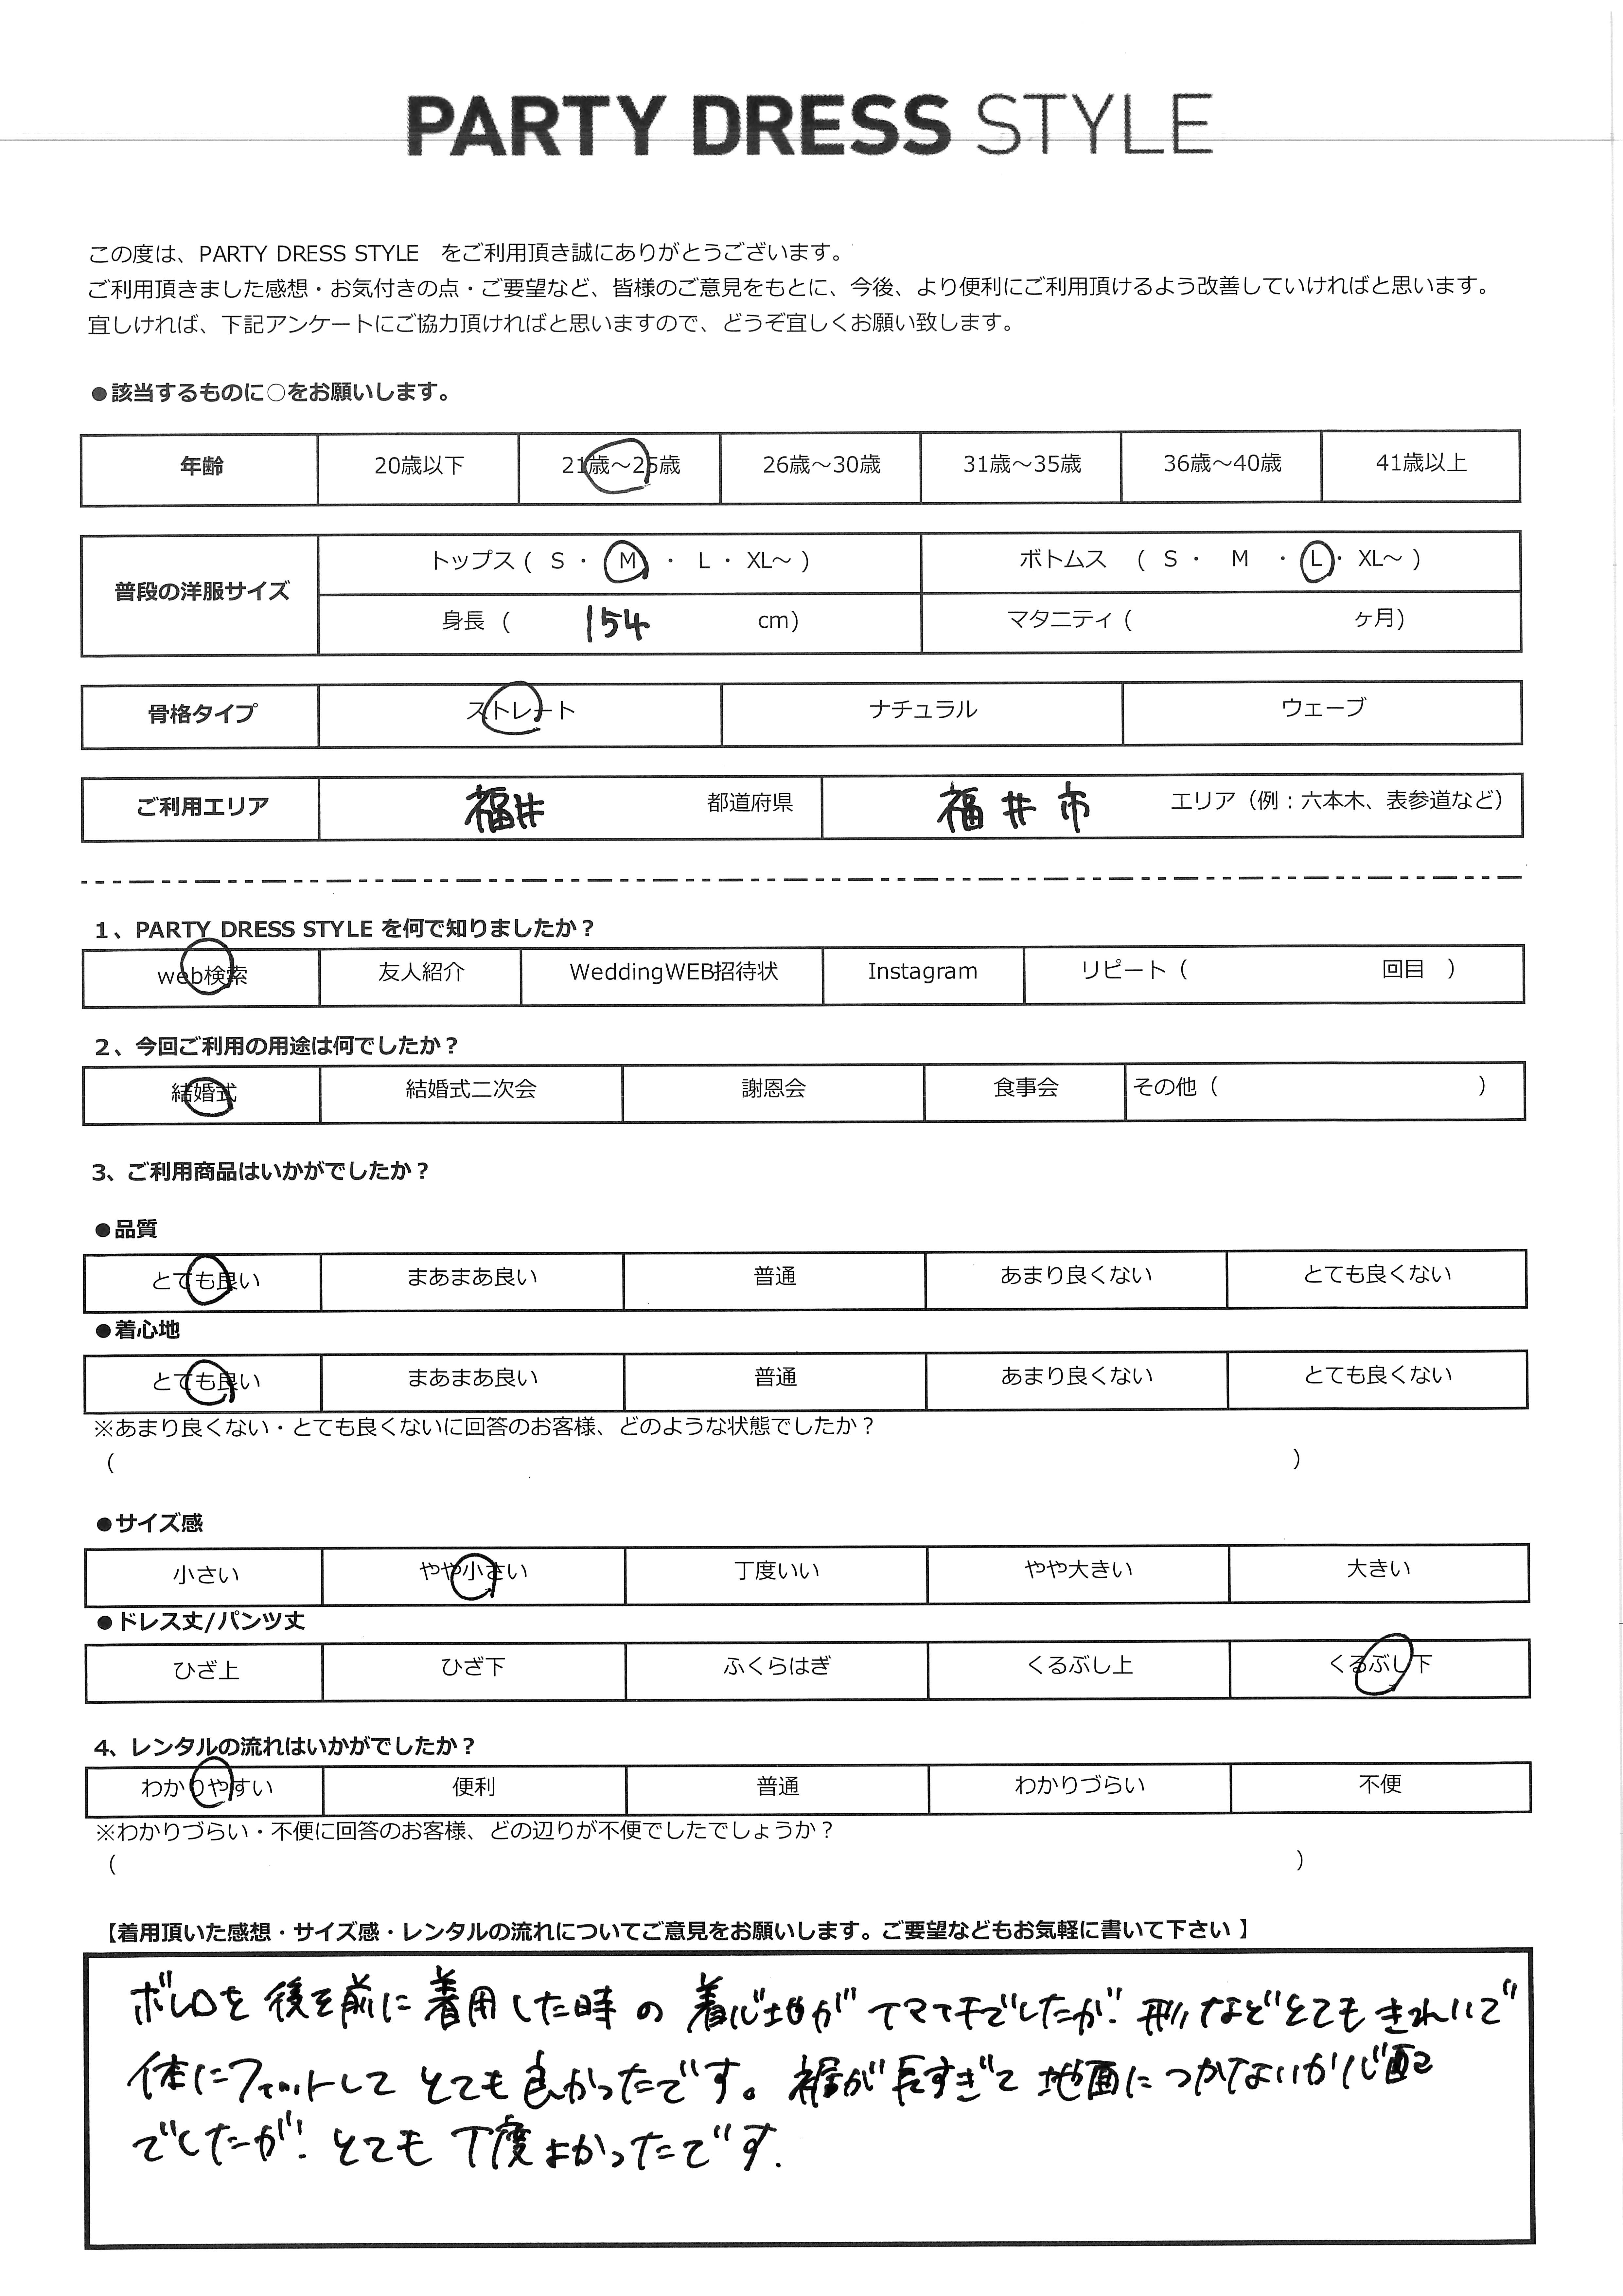 PARTY DRESS STYLE
この度は、PARTY DRESS STYLE をご利用頂き誠にありがとうございます。
ご利用頂きました感想・お気付きの点・ご要望など、皆様のご意見をもとに、今後、より便利にご利用頂けるよう改善していければと思います。
宜しければ、下記アンケートにご協力頂ければと思いますので、どうぞ宜しくお願い致します。
●該当するものに○をお願いします。
年齢 20歳以下 21歳～25歳 26歳～30歳 31歳～35歳 36歳～40歳 41歳以上
普段の洋服サイズ
トップス ( S ・ M ・ L ・ XL～ ) ボトムス ( S ・ M ・ L ・ XL～ )
身長 ( 154 cm) マタニティ ( ヶ月)
骨格タイプ ストレート ナチュラル ウェーブ
ご利用エリア 福井 都道府県 福井市 エリア（例：六本木、表参道など）
1、PARTY DRESS STYLE を何で知りましたか？
web検索 友人紹介 WeddingWEB招待状 Instagram リピート（ 回目 ）
2、今回ご利用の用途は何でしたか？
結婚式 結婚式二次会 謝恩会 食事会 その他（ ）
3、ご利用商品はいかがでしたか？
●品質
とても良い まあまあ良い 普通 あまり良くない とても良くない
●着心地
とても良い まあまあ良い 普通 あまり良くない とても良くない
※あまり良くない・とても良くないに回答のお客様、どのような状態でしたか？
( )
●サイズ感
小さい やや小さい 丁度いい やや大きい 大きい
●ドレス丈/パンツ丈
ひざ上 ひざ下 ふくらはぎ くるぶし上 くるぶし下
4、レンタルの流れはいかがでしたか？
わかりやすい 便利 普通 わかりづらい 不便
※わかりづらい・不便に回答のお客様、どの辺りが不便でしたでしょうか？
( )
【着用頂いた感想・サイズ感・レンタルの流れについてご意見をお願いします。ご要望などもお気軽に書いて下さい 】
ボレロを後ろ前に着用した時の着心地がイマイチでしたが、形などとてもきれいで
体にフィットしてとても良かったです。裾が長すぎて地面につかないか心配
でしたが、とても丁度よかったです.